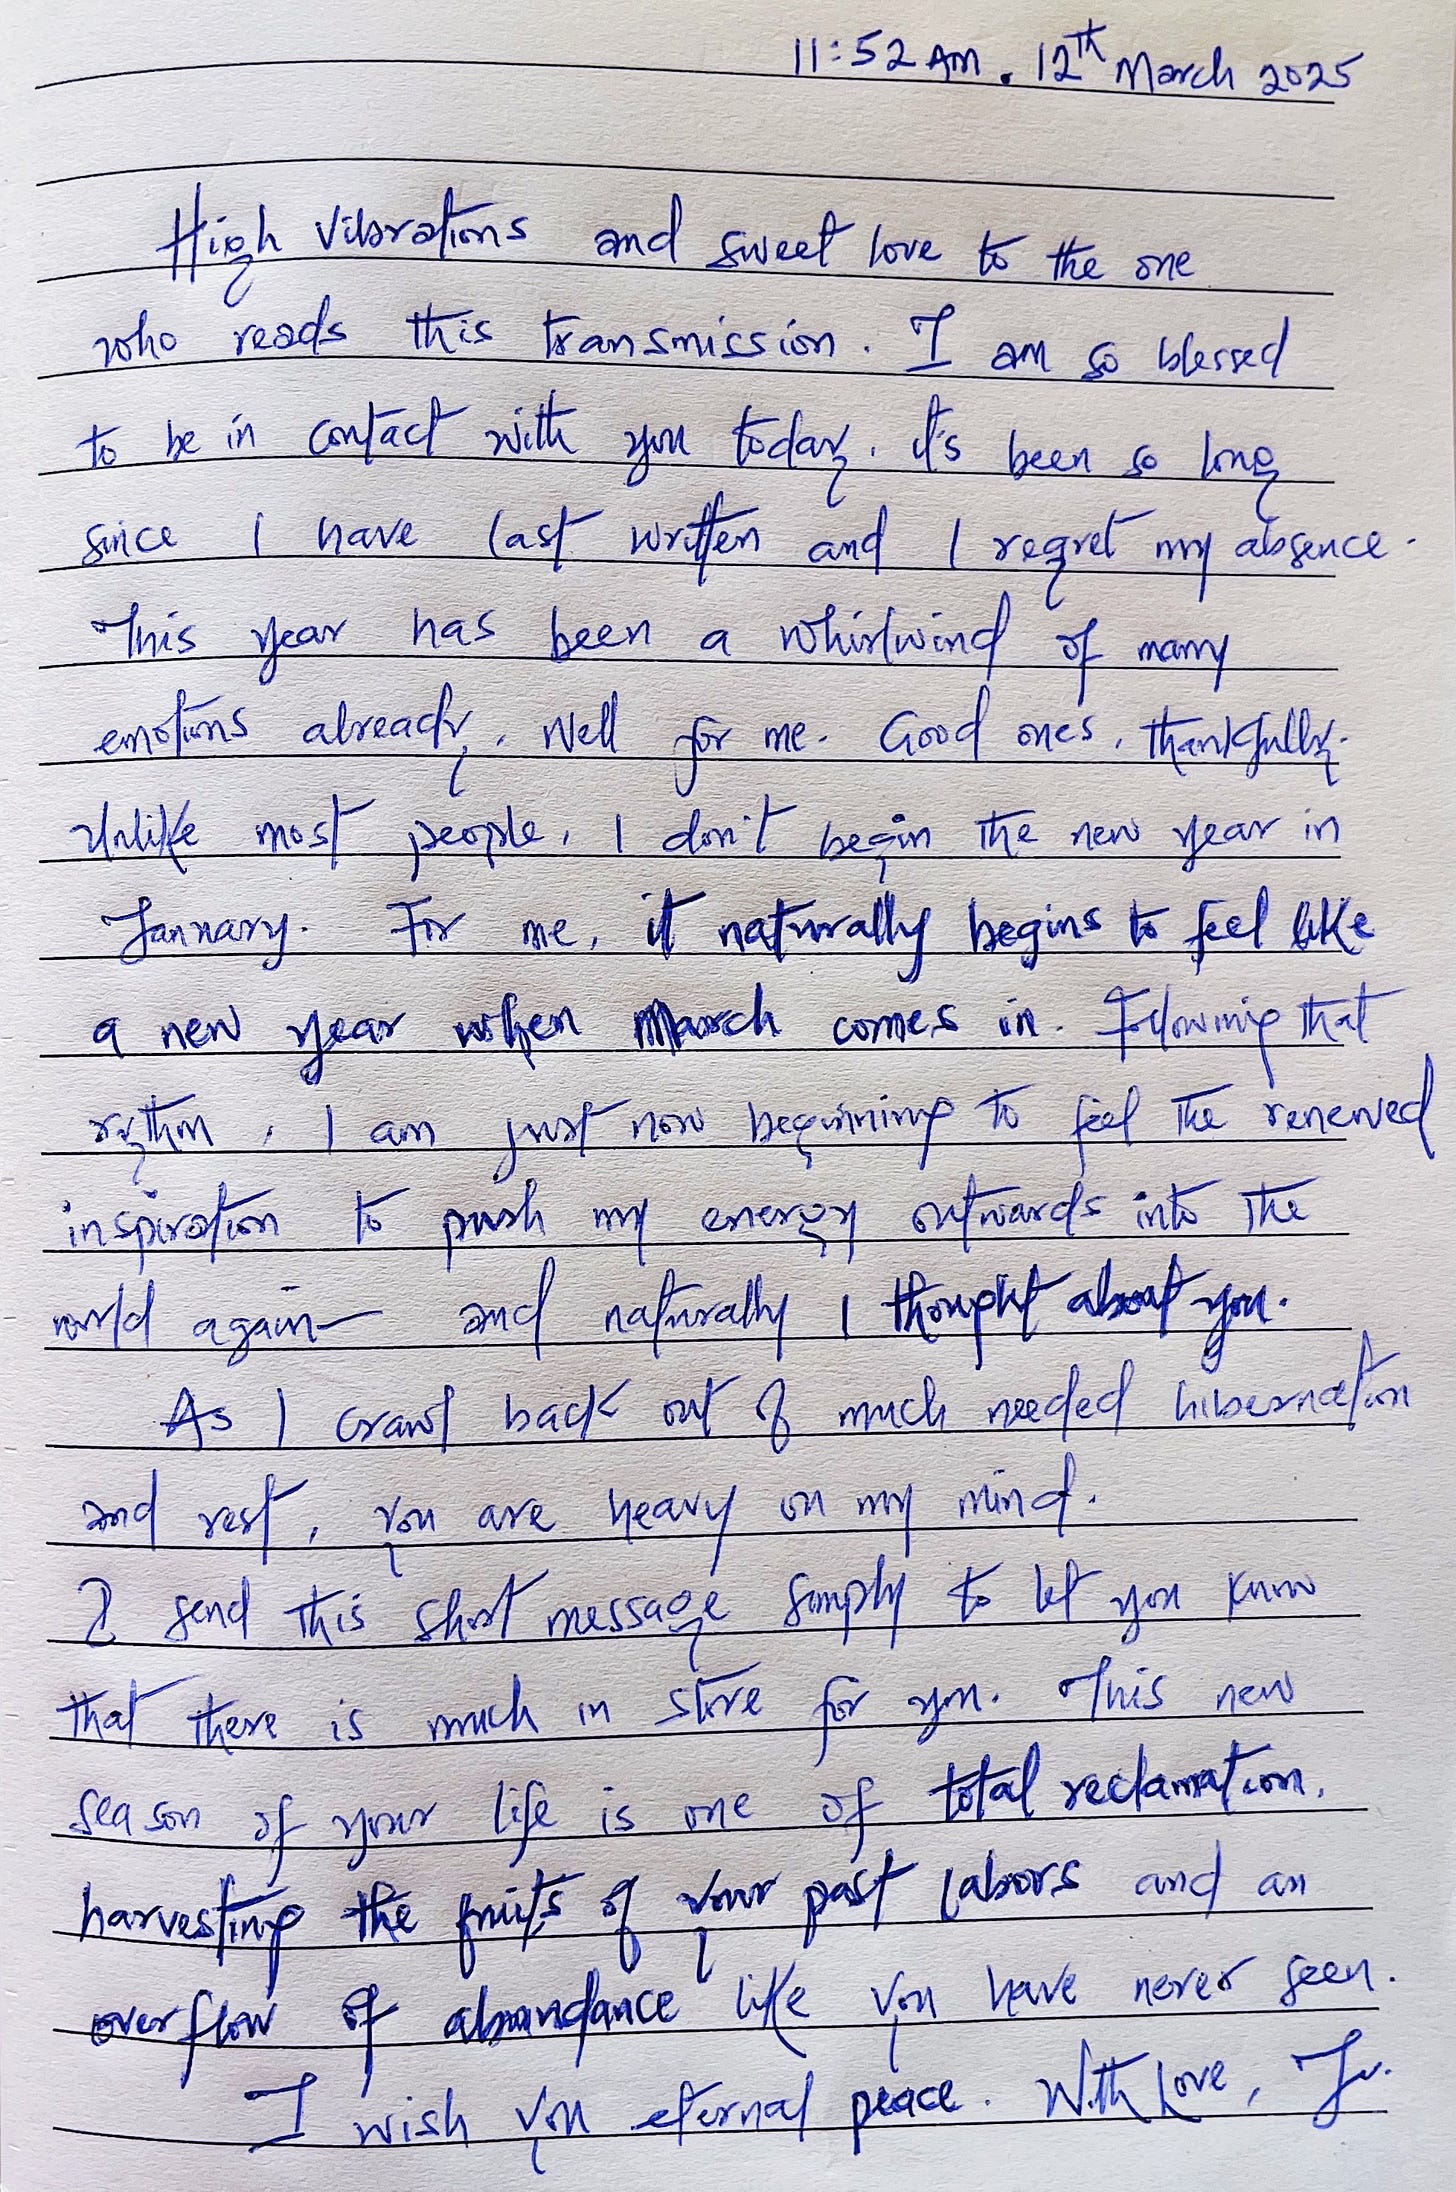 11:52 AM. 12th March 2025
High vibrations and sweet love to the one
who reads this transmission. I am so blessed
to be in contact with you today. it's been so long
since I have last written and I regret my absence.
This year has been a whirlwind of many
emotions already. Well for me. Good ones, thankfully.
Unlike most people, I don't begin the new year in
January. For me, it naturally begins to feel like
a new year when March comes in. Following that
rythm, I am just now beginning to feel the renewed
inspiration to push my energy outwards into the
world again— and naturally I thought about you.
As I crawl back out of much needed hibernation
and rest, you are heavy on my mind.
I send this short message simply to let you know
that there is much in store for you. This new
season of your life is one of total reclamation,
harvesting the fruits of your past labors and an
overflow of abundance like you have never seen.
I wish you eternal peace. With Love,